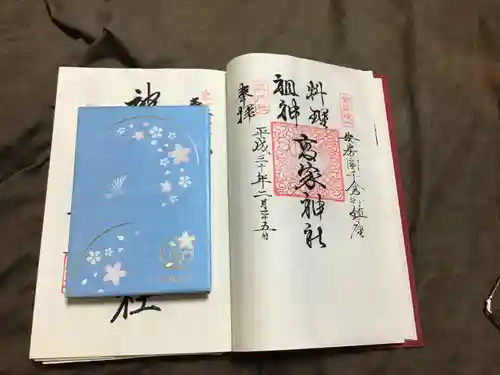 安房国千倉に鎮座
料理
祖神
高家神社
奉拝
平成三十年二月廿五日
神
社